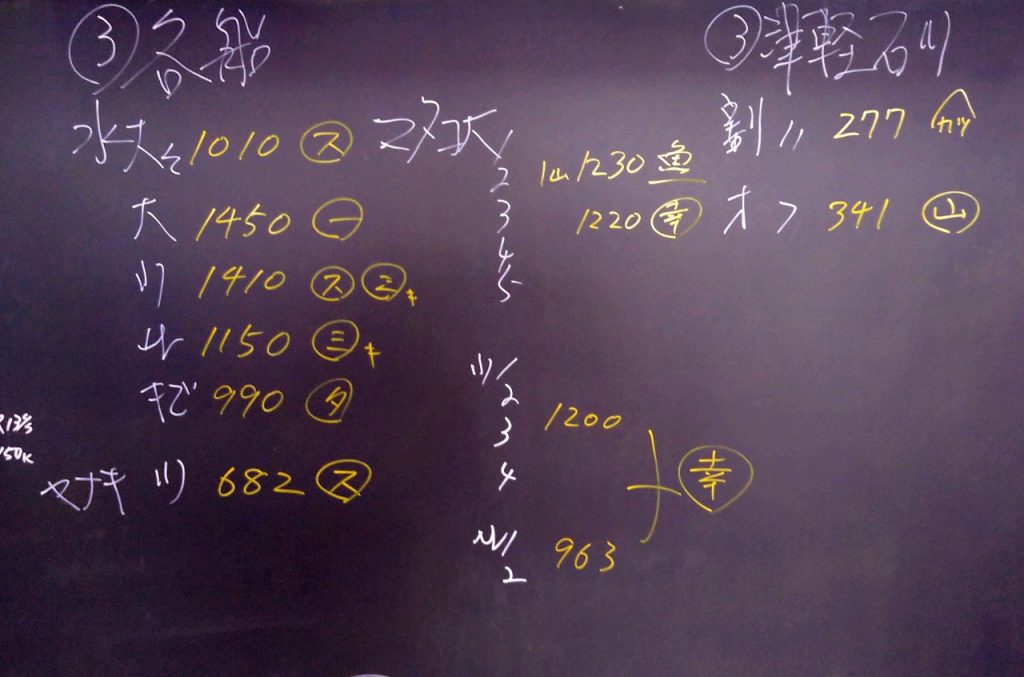 ③各船
水大々 1010 ㋜
大 1450 ㊀
小 1410 ㋜ ㊁キ
1150 ㊂キ
キど 990 ㋟
ヤナキ 小 682 ㋜
150K
マダコ大 1
2 仙 1230 魚
3 1220 幸
4
5
小 1
2
3 1200
4
幸
1
2 963
③津軽石川
割〃 277 カツ
オフ 341 山